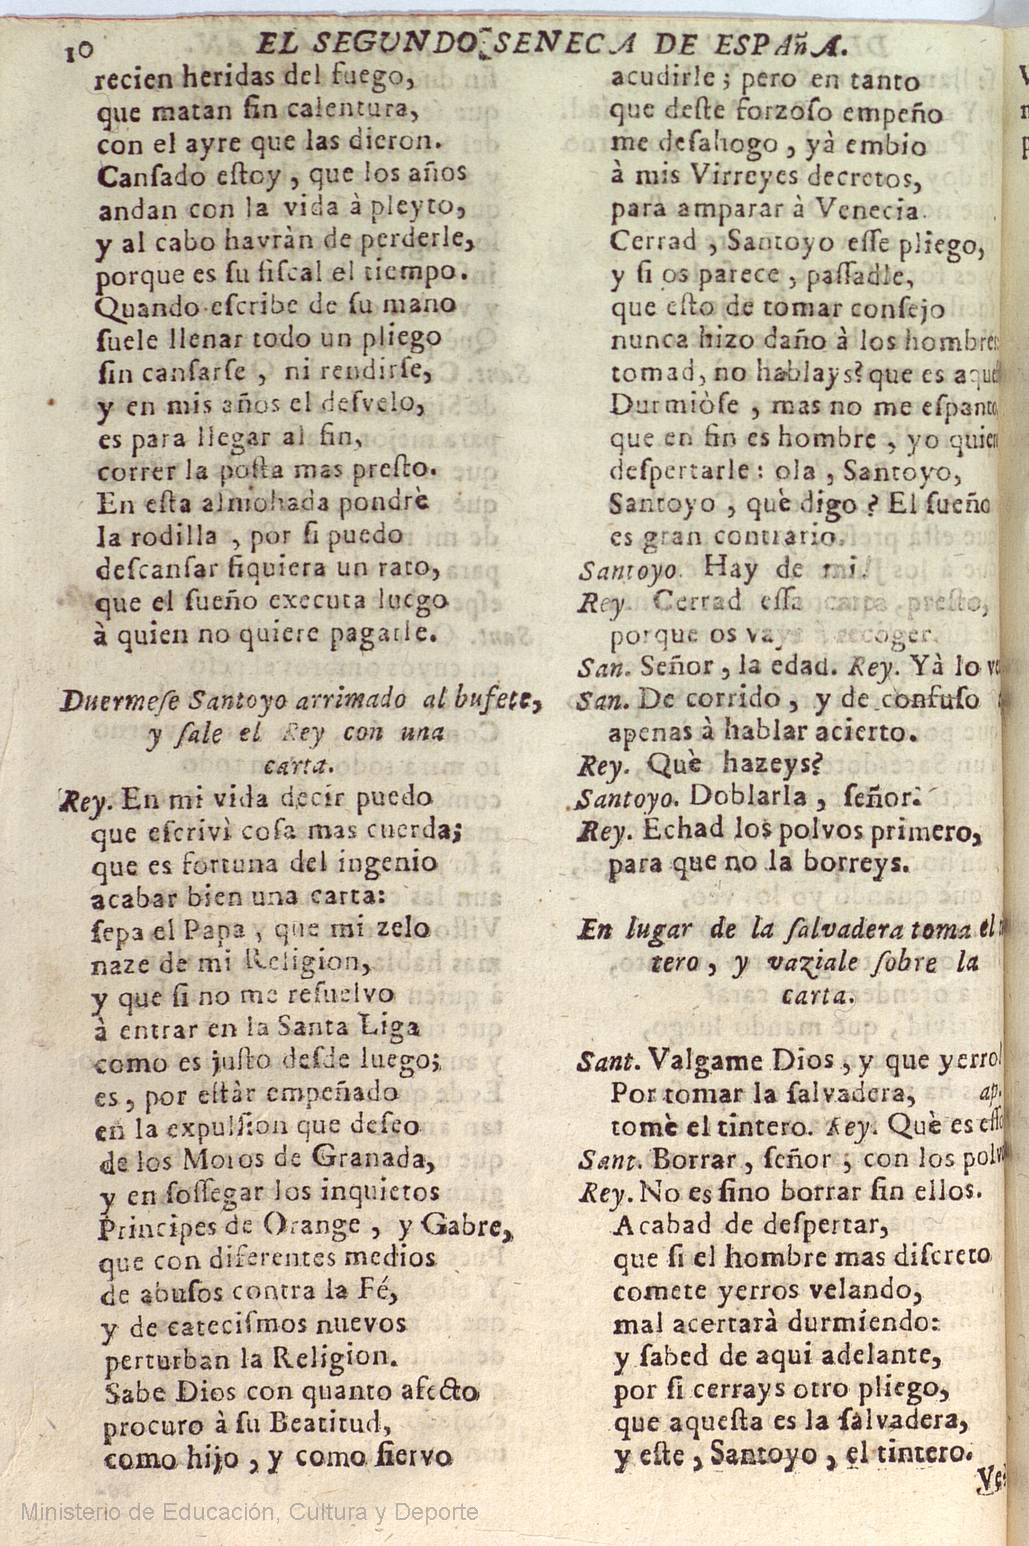 10 EL SEGUNDO SENECA DE ESPAñA.
recien heridas del fuego,
que matan ſin calentura,
con el ayre que las dieron.
Canſado eſtoy, que los años
andan con la vida à pleyto,
y al cabo havràn de perderle,
porque es ſu fiſcal el tiempo.
Quando eſcribe de ſu mano
ſuele llenar todo un pliego
ſin canſarſe, ni rendirſe,
y en mis años el deſvelo,
es para llegar al fin,
correr la poſta mas preſto.
En eſta almohada pondrè
la rodilla, por ſi puedo
deſcanſar ſiquiera un rato,
que el ſueño executa luego
à quien no quiere pagarle.
Duermeſe Santoyo arrimado al bufete,
y ſale el Rey con una
carta.
Rey. En mi vida decir puedo
que eſcrivì coſa mas cuerda;
que es fortuna del ingenio
acabar bien una carta:
ſepa el Papa, que mi zelo
naze de mi Religion,
y que ſi no me reſuelvo
à entrar en la Santa Liga
como es juſto deſde luego;
es, por eſtàr empeñado
en la expulſion que deſeo
de los Moros de Granada,
y en ſoſſegar los inquietos
Principes de Orange, y Gabre,
que con diferentes medios
de abuſos contra la Fé,
y de cateciſmos nuevos
perturban la Religion.
Sabe Dios con quanto afecto
procuro à ſu Beatitud,
como hijo, y como ſiervo
acudirle; pero en tanto
que deſte forzoſo empeño
me deſahogo, yà embio
à mis Virreyes decretos,
para amparar à Venecia.
Cerrad, Santoyo eſſe pliego,
y ſi os parece, paſſadle,
que eſto de tomar conſejo
nunca hizo daño à los hombres:
tomad, no hablays? que es
Durmiòſe, mas no me eſpanto
que en fin es hombre, yo
deſpertarle: ola, Santoyo,
Santoyo, què digo? El ſueño
es gran contrario.
Santoyo. Hay de mi!
Rey. Cerrad eſſa carta preſto,
porque os recoger.
San. Señor, la edad. Rey. Yà lo
San. De corrido, y de confuſo
apenas à hablar acierto.
Rey. Què hazeys?
Santoyo. Doblarla, ſeñor.
Rey. Echad los polvos primero,
para que no la borreys.
En lugar de la ſalvadera toma el
tero, y vaziale ſobre la
carta.
Sant. Valgame Dios, y que yerro!
Por tomar la ſalvadera, ap.
tomè el tintero. Rey. Què es
Sant. Borrar, ſeñor, con los
Rey. No es ſino borrar ſin ellos.
Acabad de deſpertar,
que ſi el hombre mas diſcreto
comete yerros velando,
mal acertarà durmiendo:
y ſabed de aqui adelante,
por ſi cerrays otro pliego,
que aqueſta es la ſalvadera,
y eſte, Santoyo, el tintero.
Ministerio de Educación, Cultura y Deporte